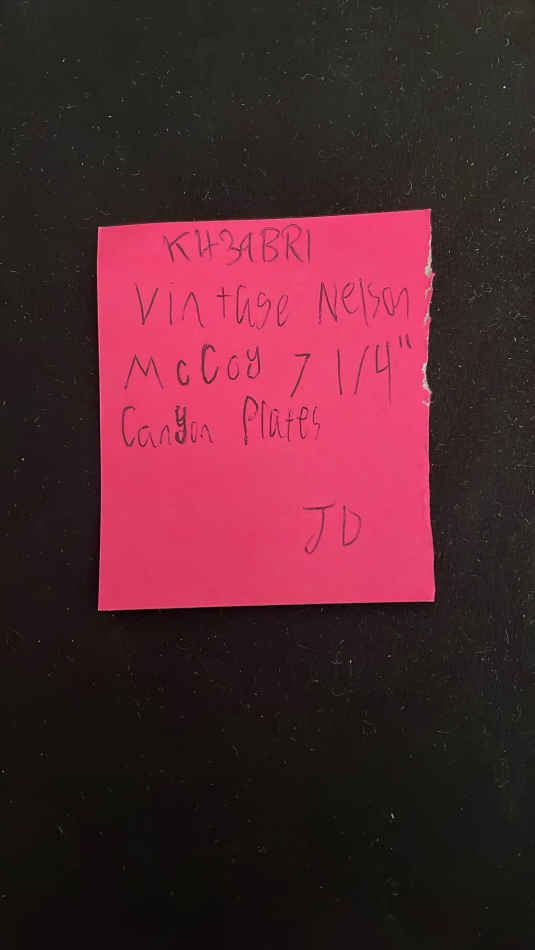 KH3ABR1
Vintage Nelson
McCoy 7 1/4"
Canyon Plates
JD